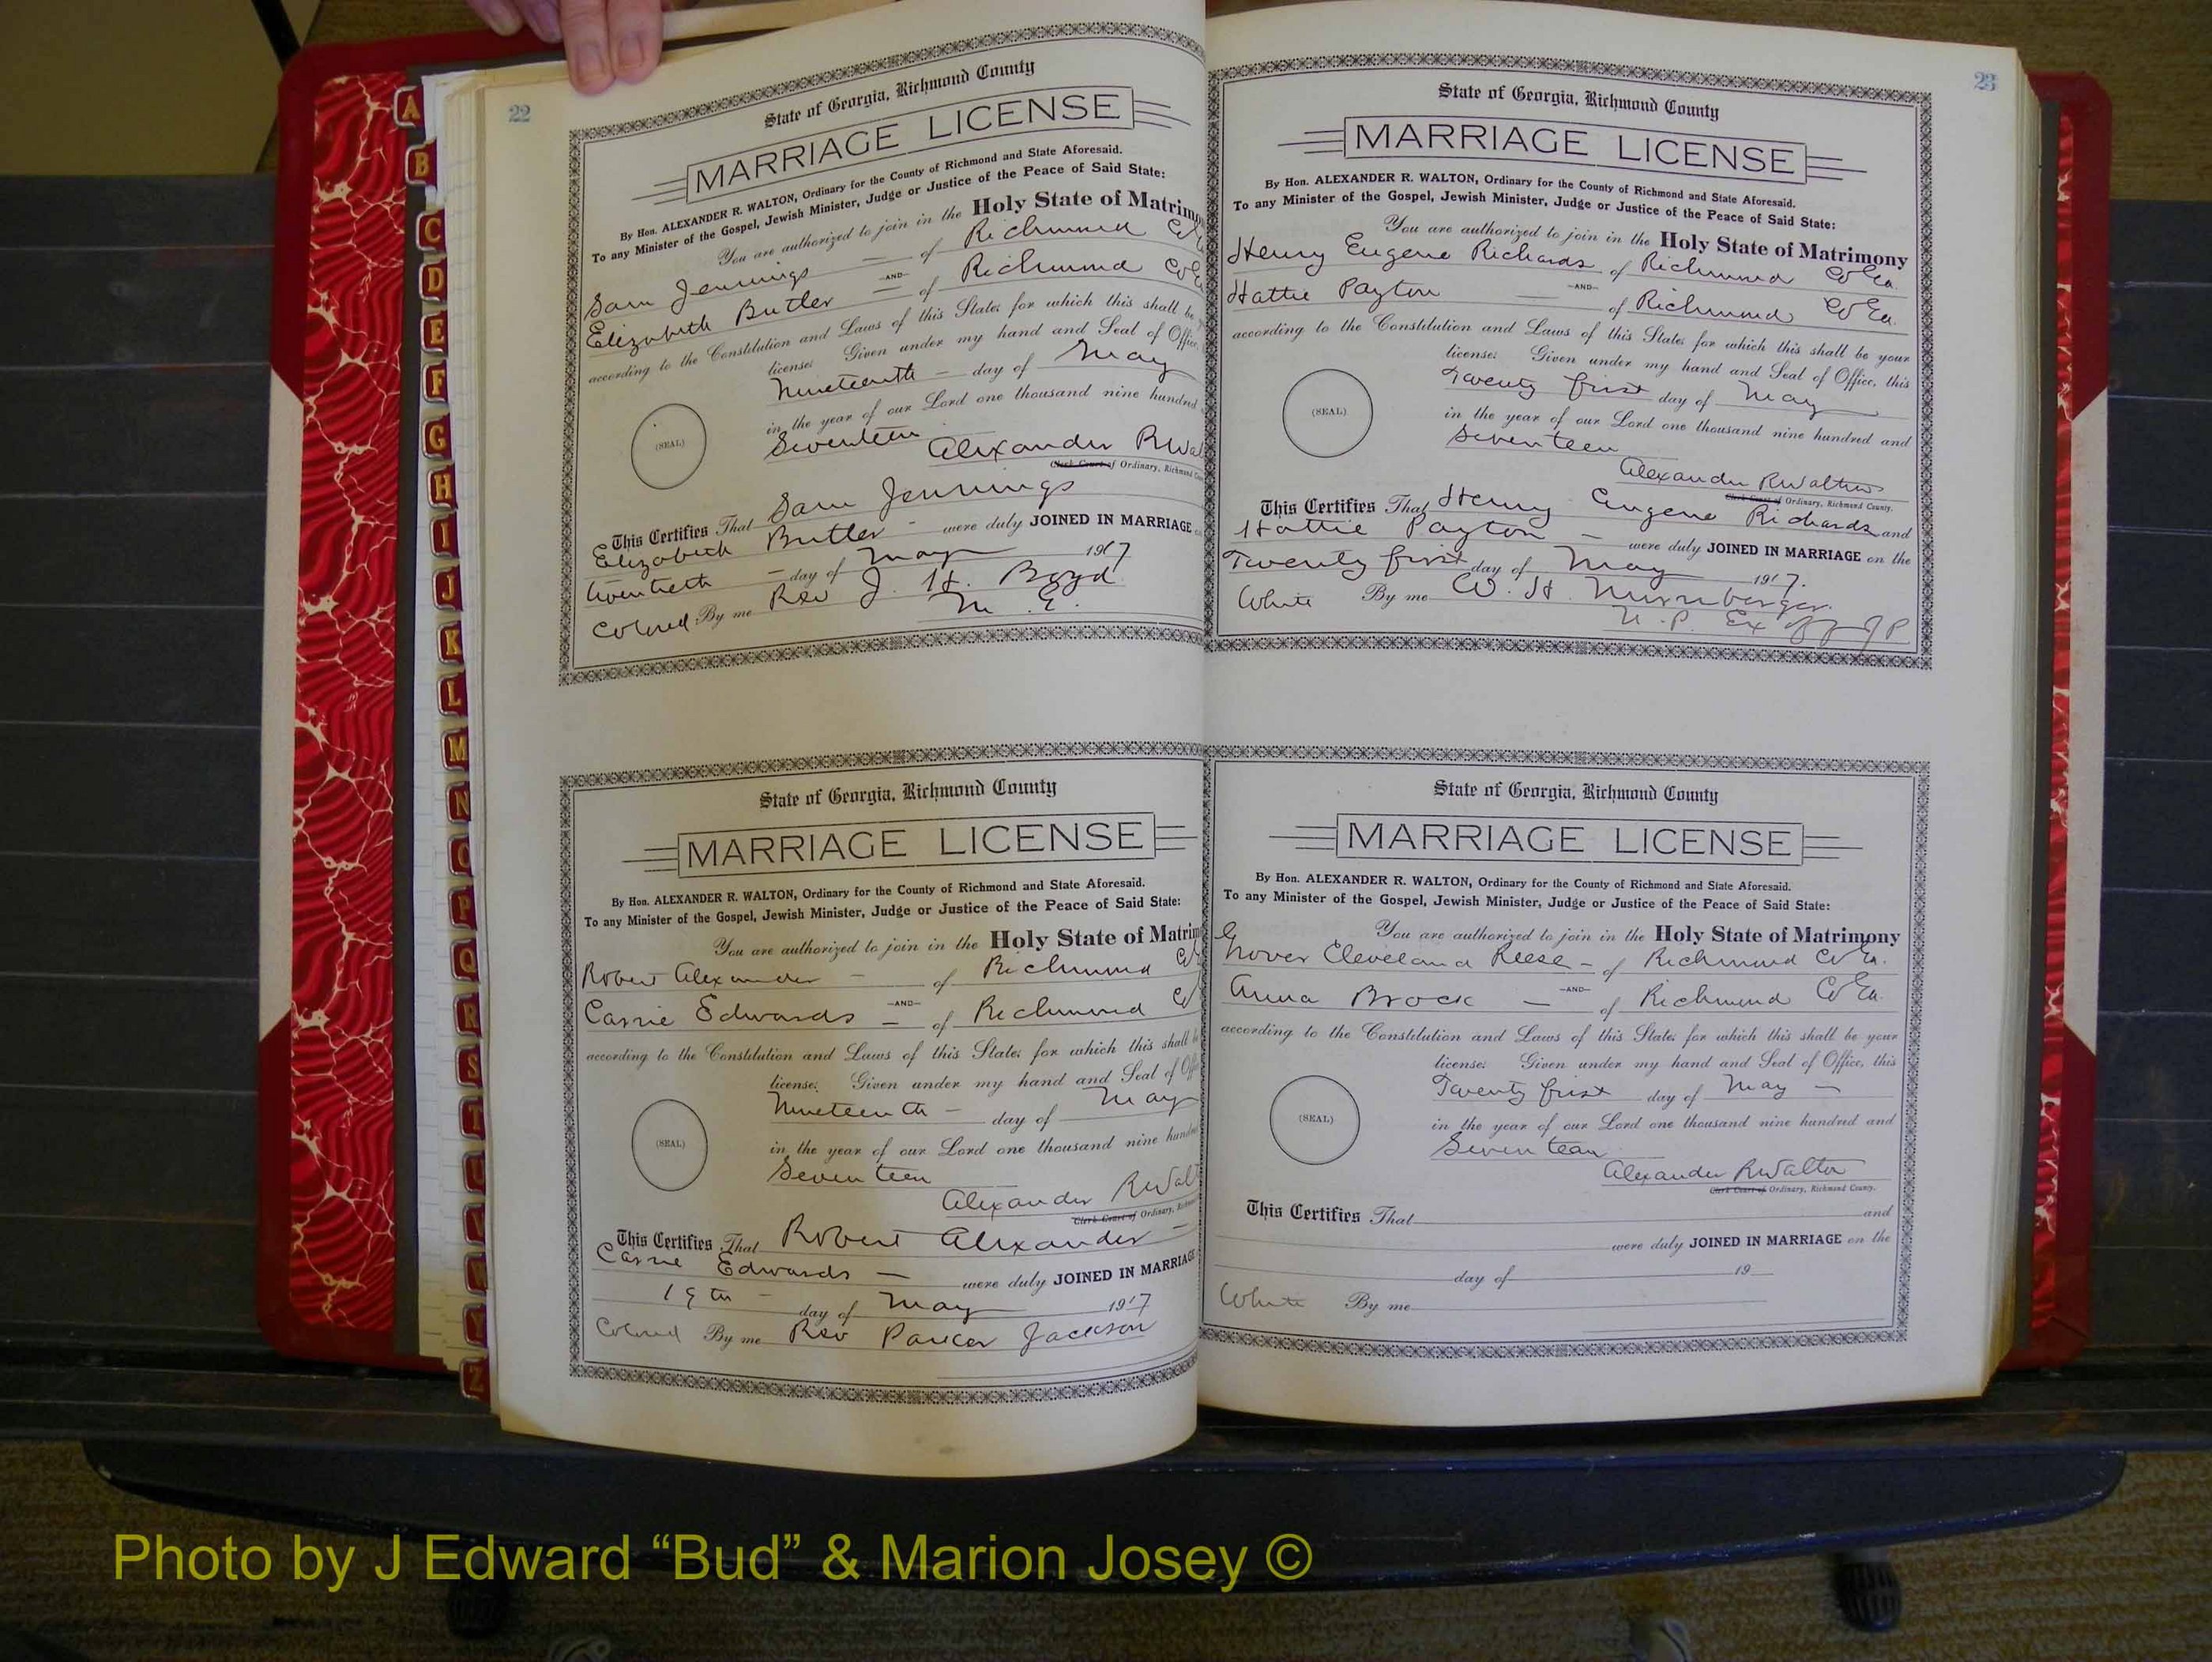 A
B
C
D
E
F
G
H
I
J
K
L
M
N
O
P
Q
R
S
T
U
V
W
Y
Z
22
State of Georgia, Richmond County
MARRIAGE LICENSE
By Hon. ALEXANDER R. WALTON, Ordinary for the County of Richmond and State Aforesaid.
To any Minister of the Gospel, Jewish Minister, Judge or Justice of the Peace of Said State:
You are authorized to join in the Holy State of Matrimo
Sam Jennings — of Richmond Co
—AND—
Elizabeth Butler — of Richmond Co
according to the Constitution and Laws of this State; for which this shall be
license: Given under my hand and Seal of Office,
Nineteenth — day of May
in the year of our Lord one thousand nine hundred
Seventeen
(SEAL)
Alexander R Wal
Clerk Court of Ordinary, Richmond
This Certifies That Sam Jennings
Elizabeth Butler - were duly JOINED IN MARRIAGE
twentieth — day of May 1917
Colored By me Rev J. H. Boyd
M. E.
State of Georgia, Richmond County
MARRIAGE LICENSE
By Hon. ALEXANDER R. WALTON, Ordinary for the County of Richmond and State Aforesaid.
To any Minister of the Gospel, Jewish Minister, Judge or Justice of the Peace of Said State:
You are authorized to join in the Holy State of Matrim
Robert Alexander — of Richmond Co
—AND—
Carrie Edwards — of Richmond Co
according to the Constitution and Laws of this State; for which this shall
license: Given under my hand and Seal of Off
Nineteenth — day of May
in the year of our Lord one thousand nine hund
Seventeen
(SEAL)
Alexander R Walt
Clerk Court of Ordinary, Richmond
This Certifies That Robert Alexander —
Carrie Edwards — were duly JOINED IN MARRIAGE
19th — day of May 1917
Colored By me Rev Parker Jackson
23
State of Georgia, Richmond County
MARRIAGE LICENSE
By Hon. ALEXANDER R. WALTON, Ordinary for the County of Richmond and State Aforesaid.
To any Minister of the Gospel, Jewish Minister, Judge or Justice of the Peace of Said State:
You are authorized to join in the Holy State of Matrimony
Henry Eugene Richards of Richmond Co Ga.
—AND—
Hattie Payton — of Richmond Co Ga.
according to the Constitution and Laws of this State; for which this shall be your
license: Given under my hand and Seal of Office, this
Twenty first day of May
in the year of our Lord one thousand nine hundred and
Seventeen
(SEAL)
Alexander R Walton
Clerk Court of Ordinary, Richmond County.
This Certifies That Henry Eugene Richards and
Hattie Payton — were duly JOINED IN MARRIAGE on the
Twenty first day of May 1917.
White By me W. H. Nurnberger.
N. P. Ex Off J P
State of Georgia, Richmond County
MARRIAGE LICENSE
By Hon. ALEXANDER R. WALTON, Ordinary for the County of Richmond and State Aforesaid.
To any Minister of the Gospel, Jewish Minister, Judge or Justice of the Peace of Said State:
You are authorized to join in the Holy State of Matrimony
Grover Cleveland Reese — of Richmond Co Ga.
—AND—
Anna Brock — of Richmond Co Ga.
according to the Constitution and Laws of this State; for which this shall be your
license: Given under my hand and Seal of Office, this
Twenty first day of May —
in the year of our Lord one thousand nine hundred and
Seventeen
(SEAL)
Alexander R Walton
Clerk Court of Ordinary, Richmond County.
This Certifies That and
were duly JOINED IN MARRIAGE on the
day of 19
White By me
Photo by J Edward “Bud” & Marion Josey ©